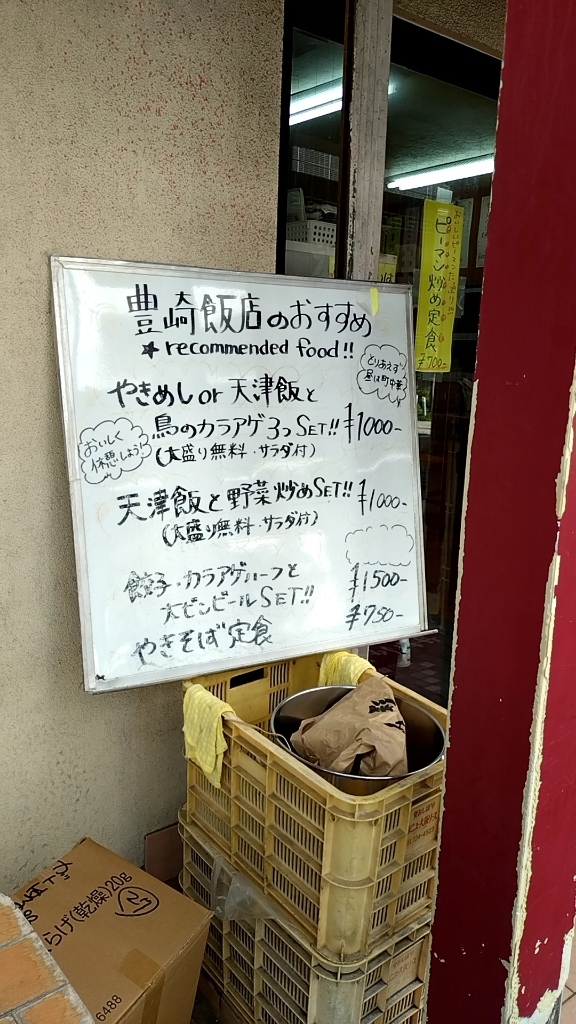 豊崎飯店のおすすめ
★recommended food!!
とりあえず
昼は町中華
やきめしor天津飯と
鳥のカラアゲ3つSET!! ¥1000-
(大盛り無料・サラダ付)
おいしく
休憩しよう!
天津飯と野菜炒めSET!! ¥1000-
(大盛り無料・サラダ付)
餃子・カラアゲハーフと ¥1500-
大ビンビールSET!!
やきそば定食 ¥750-
おいしいピーマンたっぷり!!
ピーマン炒め定食
¥700-
らげ(乾燥)20g
6488